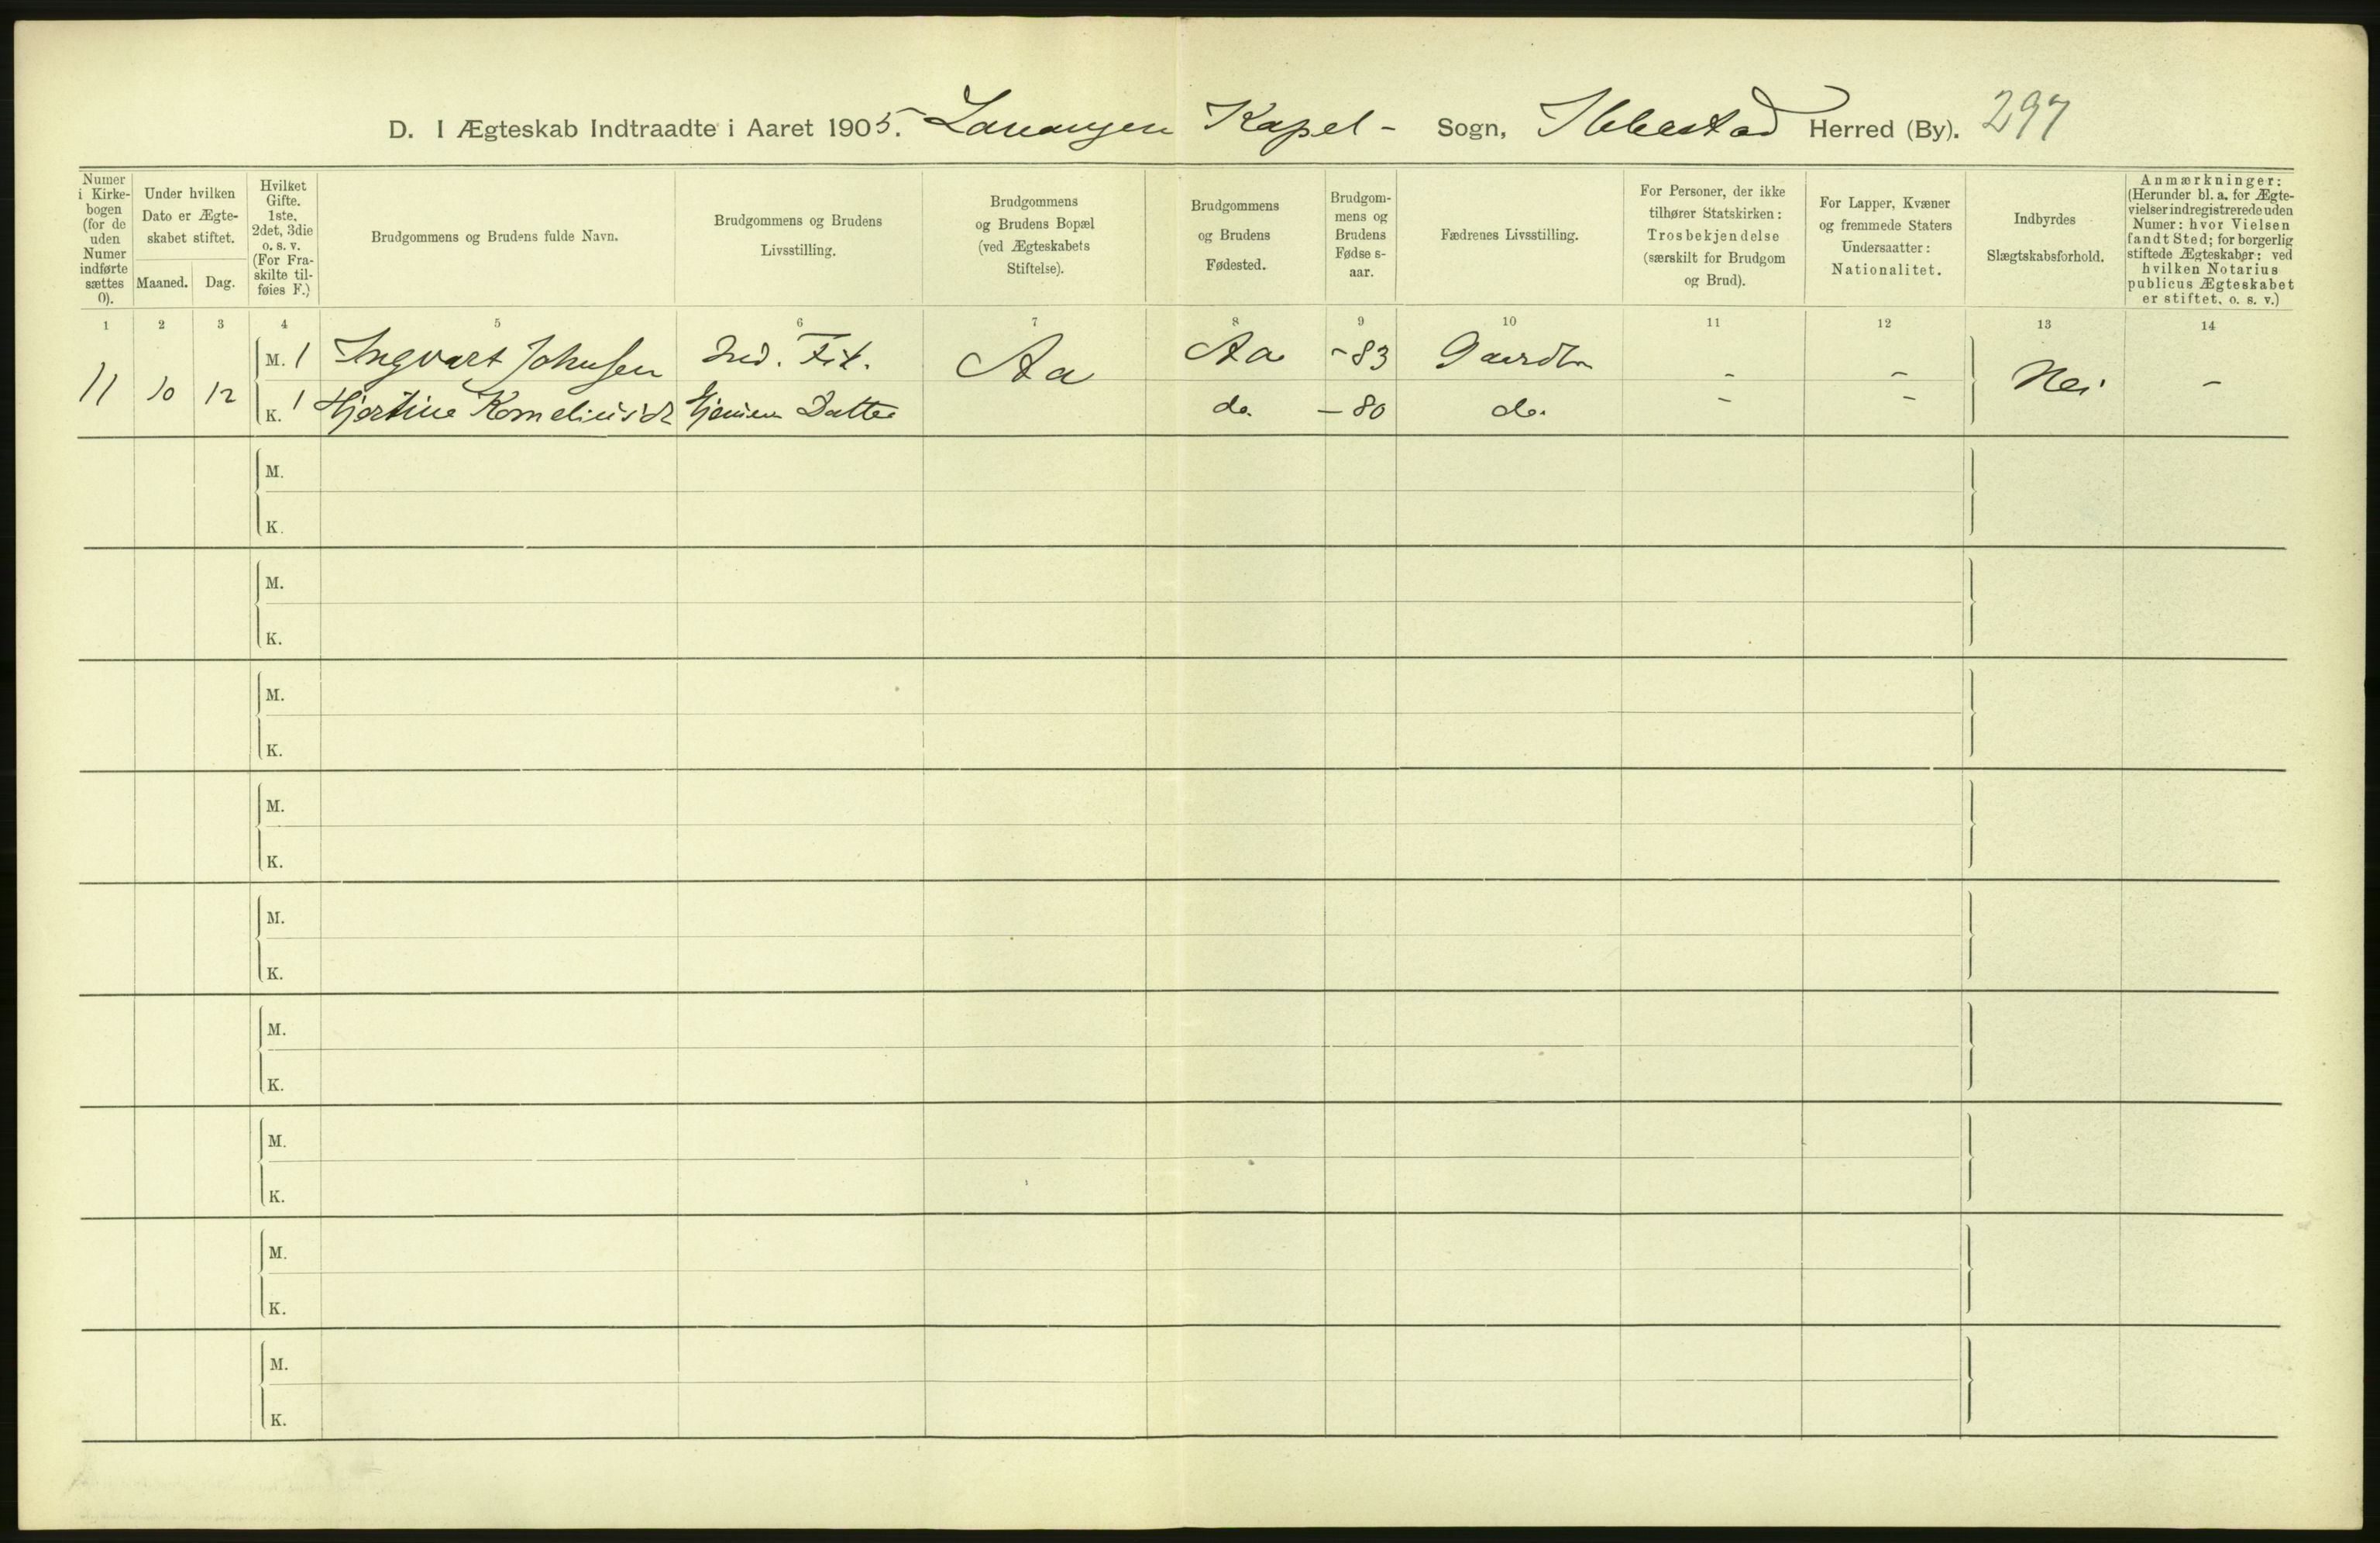 D. I Ægteskab Indtraadte i Aaret 1905. Lavangen Kapel - Sogn, Ibbestad Herred (By). 297
Numer i Kirke-bogen (for de uden Numer indførte sættes 0).
Under hvilken Dato er Ægte-skabet stiftet.
Maaned. Dag.
Hvilket Gifte. 1ste, 2det, 3die o. s. v. (For Fra-skilte til-føies F.)
Brudgommens og Brudens fulde Navn.
Brudgommens og Brudens Livsstilling.
Brudgommens og Brudens Bopæl (ved Ægteskabets Stiftelse).
Brudgommens og Brudens Fødested.
Brudgom-mens og Brudens Fødse s-aar.
Fædrenes Livsstilling.
For Personer, der ikke tilhører Statskirken: Trosbekjendelse (særskilt for Brudgom og Brud).
For Lapper, Kvæner og fremmede Staters Undersaatter: Nationalitet.
Indbyrdes Slægtskabsforhold.
Anmærkninger: (Herunder bl. a. for Ægte-vielser indregistrerede uden Numer: hvor Vielsen fandt Sted; for borgerlig stiftede Ægteskaber: ved hvilken Notarius publicus Ægteskabet er stiftet, o. s. v.)
1 2 3 4 5 6 7 8 9 10 11 12 13 14
11 10 12 M. 1 Ingvart Johnsen Ind. Fisk. Aa Aa -83 Gaardbr - - Nei -
K. 1 Hjertine Korneliusd. Hjemmev. Datter do. -80 do. - -
M.
K.
M.
K.
M.
K.
M.
K.
M.
K.
M.
K.
M.
K.
M.
K.
M.
K.